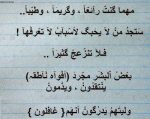 مهما كنت رائعاً ، وكريماً .. وطيباً..
ستجد من لا يحبك لأسباب لا تعرفها !
فلا تنزعج كثيراً ..
بعض البشر مجرد (أفواه ناطقه)
ينتقدون .. ويذمون
وليتهم يدركون أنهم { غافلون }